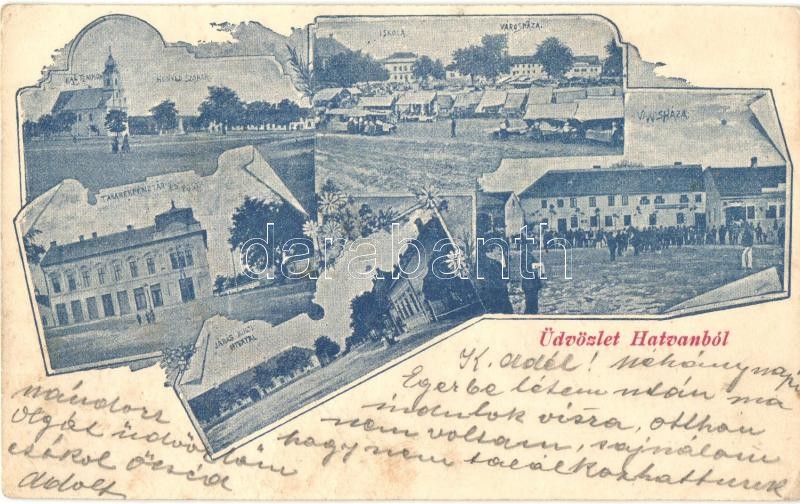 KATH. TEMPLOM
HONVÉD SZOBOR
ISKOLA
VÁROSHÁZA.
TAKARÉKPÉNZTÁR ÉS
JÁRÁS BIRÓI
HIVATAL
darabanth.com
Üdvözlet Hatvanból
K. Adél! Néhány napi
Egerbe létem után ma
indulok vissza, otthon
nem voltam, sajnálom
hogy nem találkozhattunk
Nándort
Olgát üdvözlöm
csókol öcséd
Adolf